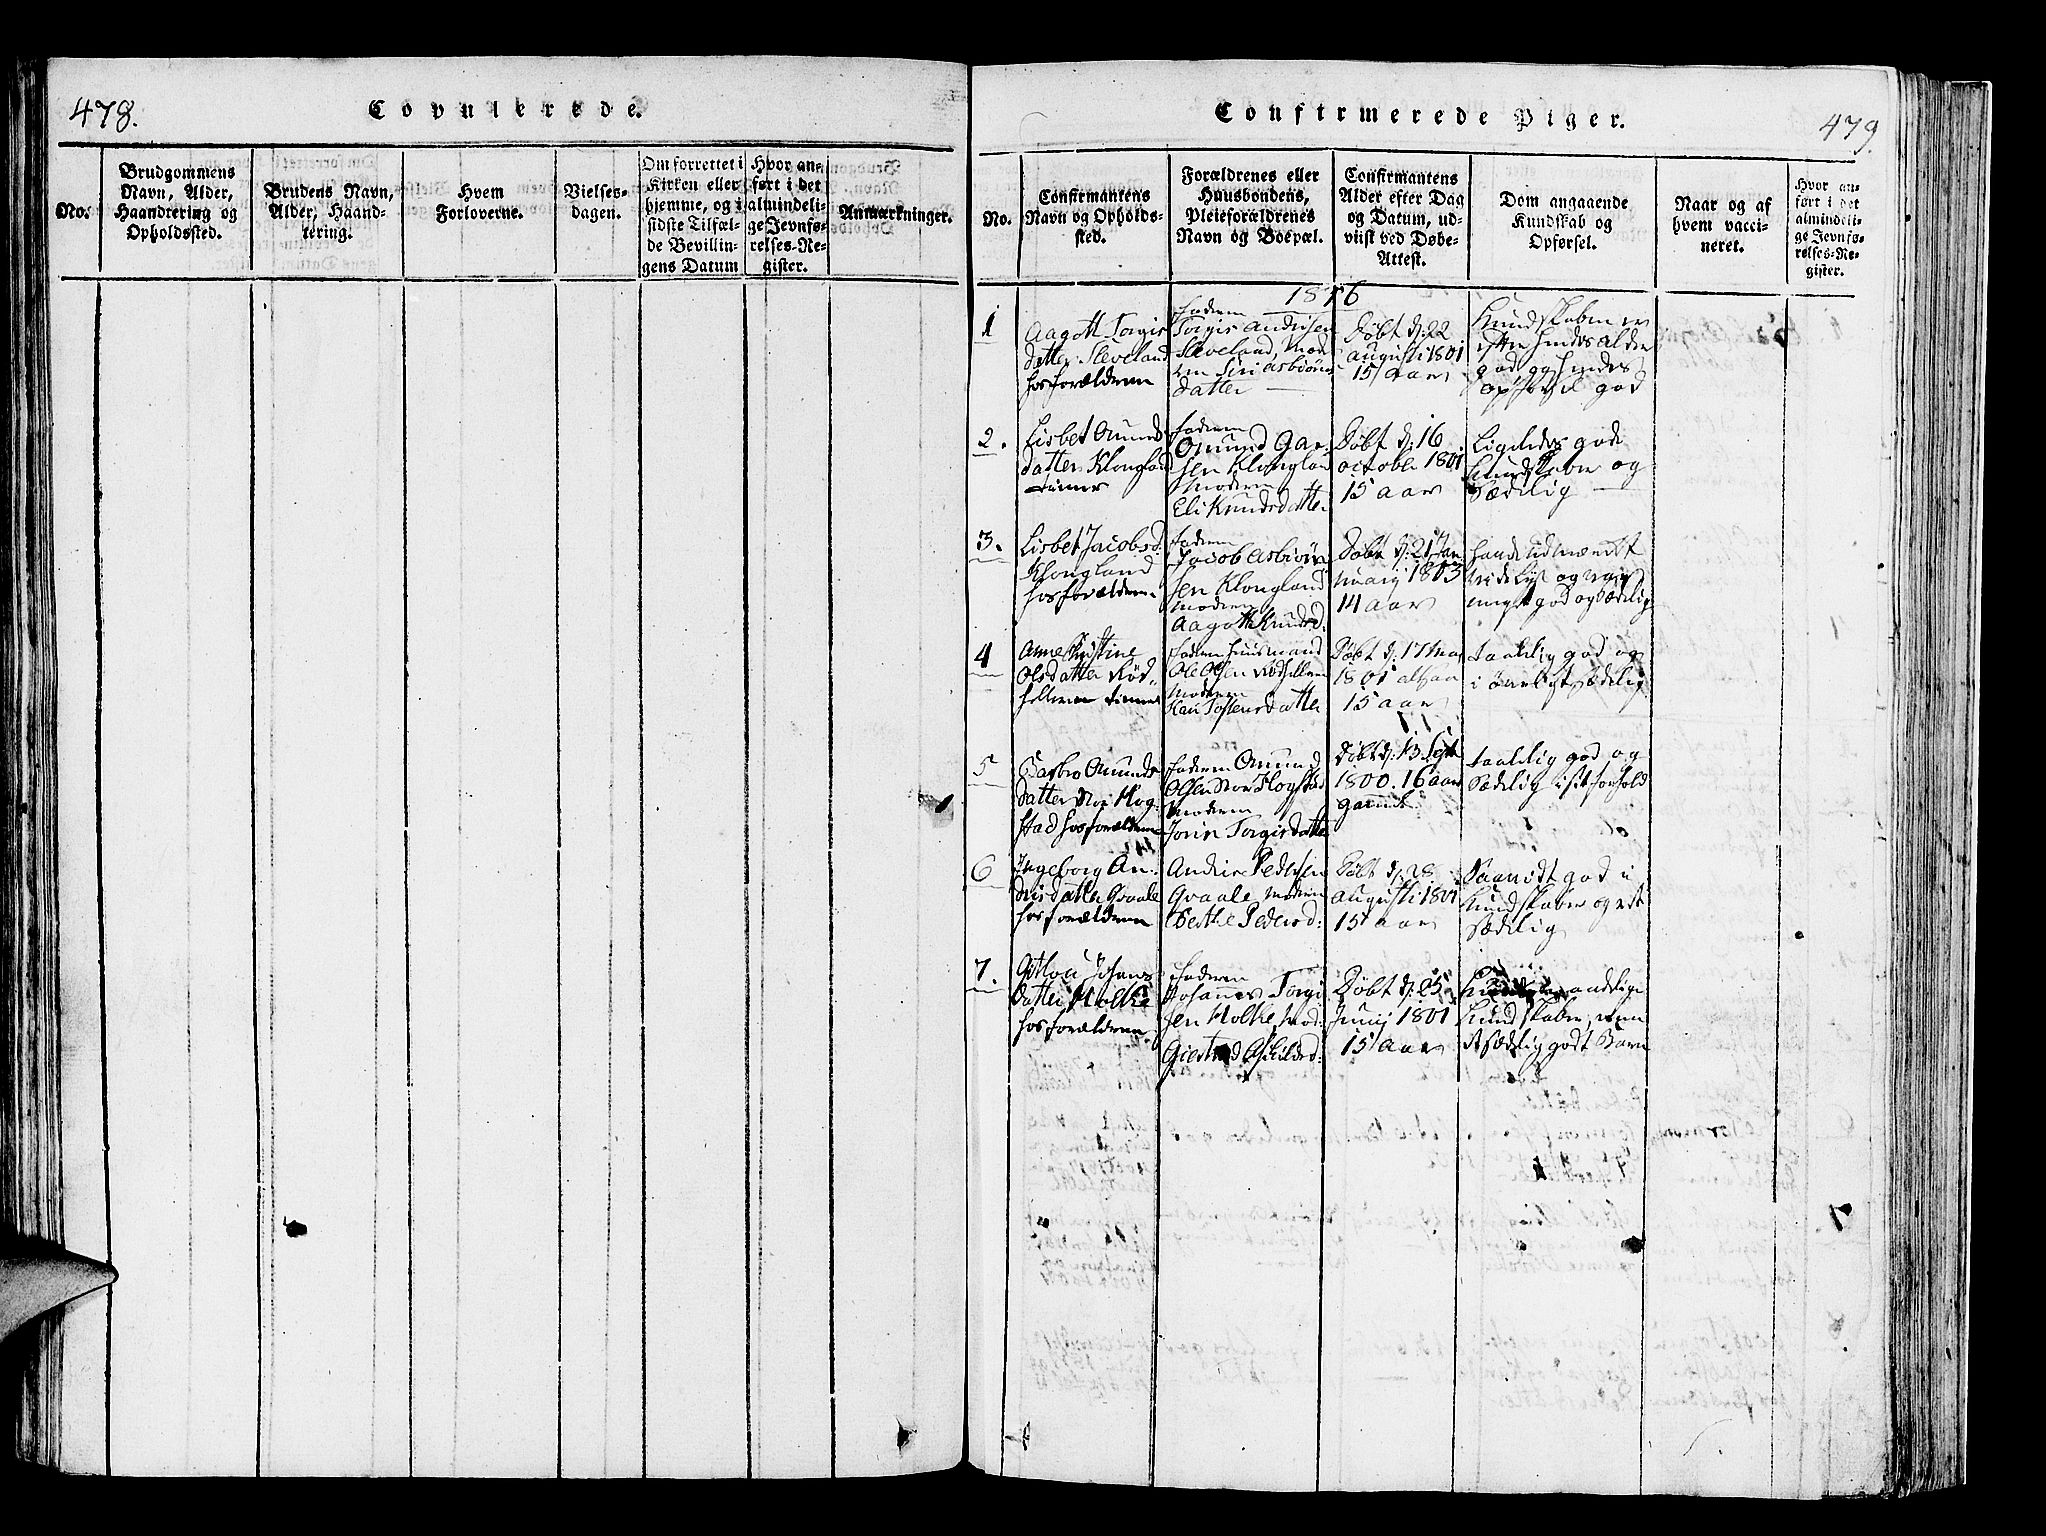 478.
Copulerede.
No.
Brudgommens
Navn, Alder,
Haandtering og
Opholdssted.
Brudens Navn,
Alder, Haand-
tering.
Hvem
Forloverne.
Vielses-
dagen.
Om forrettet i
Kirken eller
hjemme, og i
sidste Tilfæl-
de Bevillin-
gens Datum
Hvor an-
ført i det
almindeli-
ge Jevnfø-
relses-Re-
gister.
Anmærkninger.
Confirmerede Piger.
479.
No.
Confirmantens
Navn og Opholds-
sted.
Forældrenes eller
Huusbondens,
Pleieforældrenes
Navn og Boepæl.
Confirmantens
Alder efter Dag
og Datum, ud-
viist ved Døbe-
Attest.
Dom angaaende
Kundskab og
Opførsel.
Naar og af
hvem vacci-
neret.
Hvor an-
ført i det
almindeli-
ge Jevnfø-
relses-Re-
gister.
1816
1
Aagott Torgis
datter Sleveland
hos forældrene
faderen
Torgis Andrisen
Sleveland, Mod-
ren Siri Asbiørns
datter
Døbt d: 22
augusti 1801
15 aar
Kundskaben er
efter hendes alder
god og hendes
opførsel god
2.
Lisbet Omunds
datter Klongland
tiener
faderen
Omund Gar-
sen Klongland
moderen
Eli Knudsdatter
Døbt d: 16
octobr 1801
15 aar
Ligeledes gode
Kundskaber og
Sædelig
3.
Lisbet Jacobsd:
Klongland
hos forældrene
faderen
Jacob Asbiørn
sen Klongland
moderen
Aagott Knudsd:
Døbt d: 21 Jan
nuarij 1803
14 aar
meget god og sædelig
4
Anne Kristine
Olsdatter Rød-
helleren tiener
faderen huusmand
Ole Olsen Rødhelleren
moderen
Kari Tostensdatter
Døbt d: 17 Mai
1801 altsaa
15 aar
taalelig god og
i øvrigt Sædelig
5
Barbro Omunds
datter Nor Hog-
stad hos forældrene
faderen Omund
Olsen Nor Hogstad
moderen
Jorin Torgisdatter
Døbt d: 13 Sept
1800. 16 aar
gammel
taalelig god og
Sædelig i sit forhold
6
Ingeborg An-
drisdatter Qvaale
hos forældrene
Andris Pedersen
Qvaale moderen
Berthe Pedersd:
Døbt d: 28
augusti 1801
15 aar
god i
Kundskaber og ret
sædelig
7.
Gitlou Johans
datter Molke
hos forældrene
faderen
Johannes Torgi
sen Molke, mod:
Giertrud Eskildsd:
Døbt d: 25
Junij 1801
15 Aar
maadelige
Kundskaber, men
et sædelig godt Barn